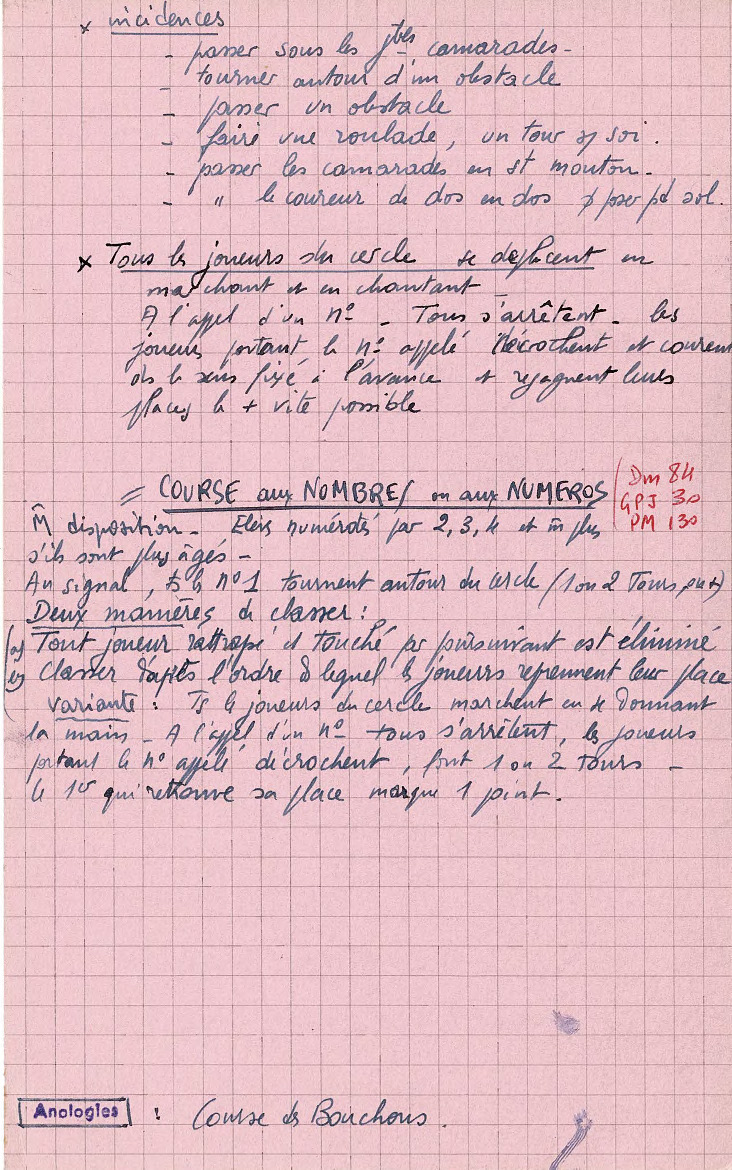 x incidences
- passer sous les jbes camarades -
- tourner autour d'un obstacle
- passer un obstacle
- faire une roulade, un tour s/ soi.
- passer les camarades en st mouton.
- " le coureur de dos en dos poser pd sol.
x Tous les joueurs du cercle se déplacent en
marchant et en chantant
A l'appel d'un n° - Tous s'arrêtent - les
joueurs portant le n° appelé décrochent et courent
ds le sens fixé à l'avance et regagnent leurs
places le + vite possible
= COURSE aux NOMBRES ou aux NUMEROS
Dm 84
GPJ 30
PM 130
M̂ disposition - Elèves numérotés par 2, 3, 4 et m̂ plus
s'ils sont plus âgés -
Au signal, ts les n° 1 tournent autour du cercle (1 ou 2 Tours, ou +)
Deux manières de classer :
a) Tout joueur rattrapé et touché par poursuivant est éliminé
b) Classer d'après l'ordre ds lequel les joueurs reprennent leur place
variante : Ts les joueurs du cercle marchent en se donnant
la main - A l'appel d'un n° tous s'arrêtent, les joueurs
portant le n° appelé décrochent, font 1 ou 2 tours -
le 1er qui retrouve sa place marque 1 point.
Analogies : Course des Bouchons.